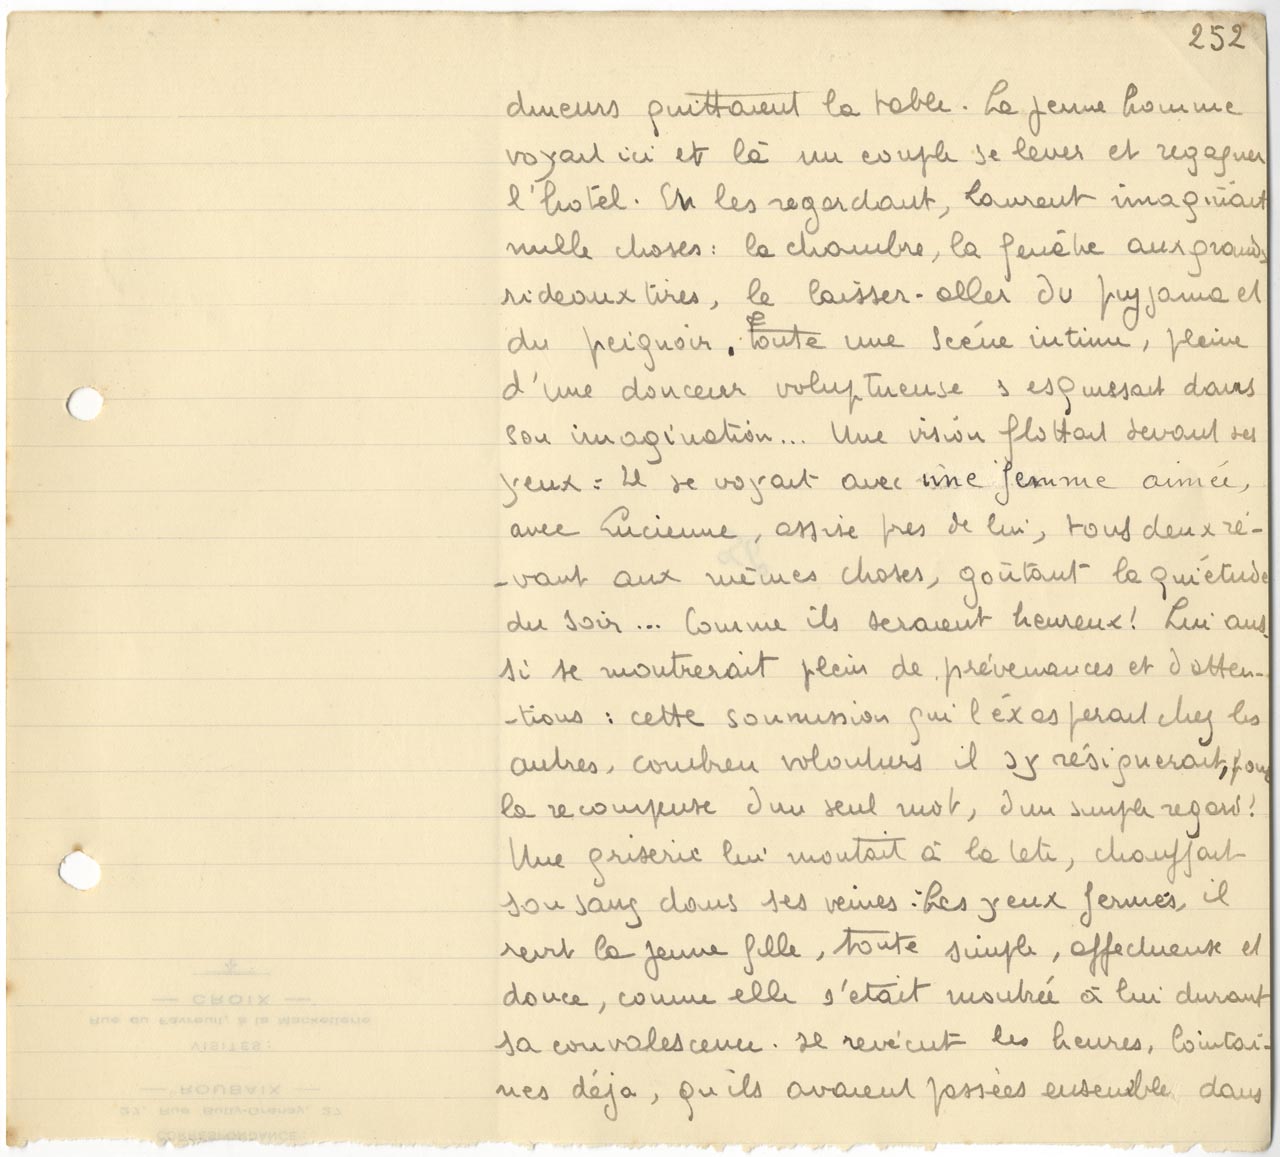 252
dineurs quittaient la table. Le jeune homme
voyait ici et là un couple se lever et regagner
l'hotel. En les regardant, Laurent imaginait
mille choses: la chambre, la fenêtre aux grands
rideaux tirés, le laisser-aller du pyjama et
du peignoir. Toute une scène intime, pleine
d'une douceur voluptueuse s esquissait dans
son imagination... Une vision flottait devant ses
yeux: Il se voyait avec une femme aimée,
avec Lucienne, assise près de lui, tous deux rê-
-vant aux mêmes choses, goûtant la quiétude
du soir... Comme ils seraient heureux! Lui aus-
si se montrerait plein de prévenances et d'atten-
-tions: cette soumission qui l'éxasperait chez les
autres, combien volontiers il s'y résignerait, pour
la recompense d'un seul mot, d'un simple regard!
Une griserie lui montait à la tete, chauffait
son sang dans ses veines: Les yeux fermés, il
revit la jeune fille, toute simple, affectueuse et
douce, comme elle s'était montrée à lui durant
sa convalescence. Il revécut les heures, lointai-
nes déja, qu'ils avaient passées ensemble dans
CROIX
Rue du Favreuil, à la Mackellerie
VISITES:
ROUBAIX
27, Rue Bully-Grenay, 27
CORRESPONDANCE: